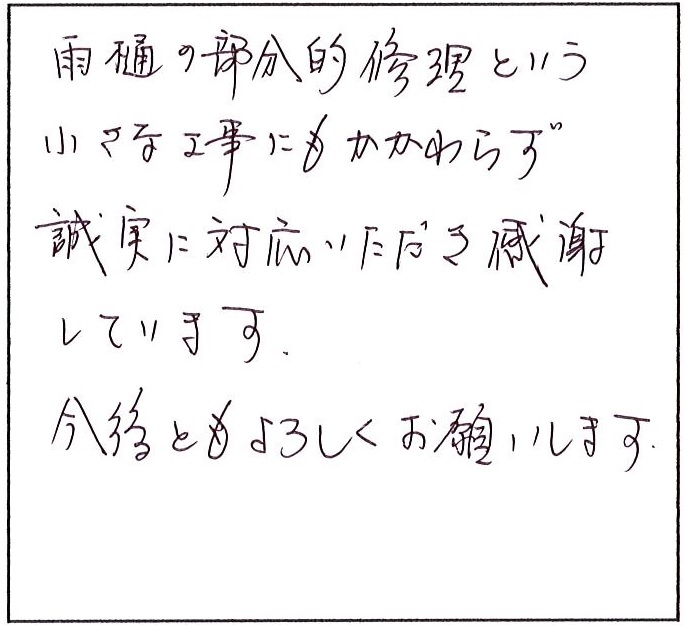 雨樋の部分的修理という
小さな工事にもかかわらず
誠実に対応いただき感謝
しています.
今後ともよろしくお願いします.